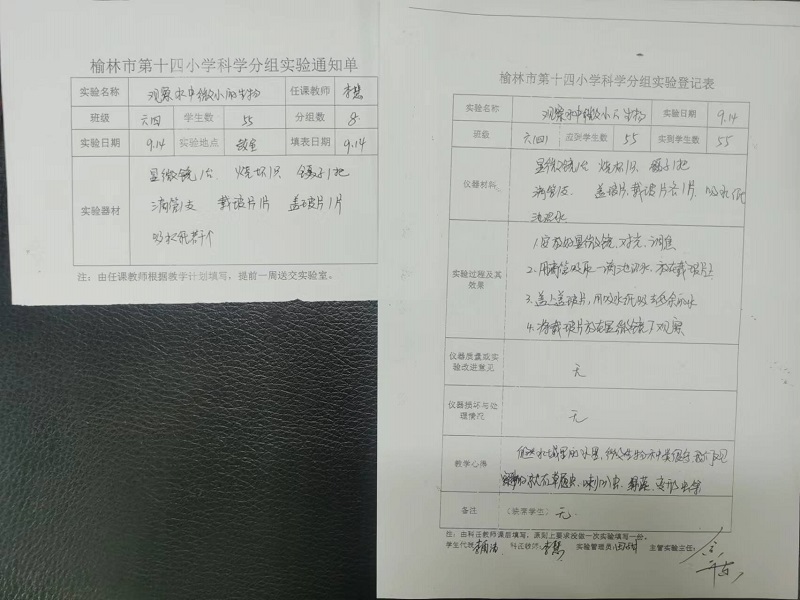 榆林市第十四小学科学分组实验通知单
实验名称 观察水中微小的生物 任课教师 李慧
班级 六四 学生数 55 分组数 8
实验日期 9.14 实验地点 填表日期 9.14
实验器材
显微镜1台 烧杯1只 镊子1把
滴管1支 载玻片1片 盖玻片1片
吸水纸若干
注：由任课教师根据教学计划填写，提前一周送交实验室。
榆林市第十四小学科学分组实验登记表
实验名称 观察水中微小的生物 实验日期 9.14
班级 六(四) 应到学生数 55 实到学生数 55
仪器材料
显微镜1台 烧杯1只 镊子1把
滴管1支、盖玻片、载玻片各1片、吸水纸
池塘水
实验过程及其效果
1. 安放好显微镜、对光、调焦
2. 用滴管吸取一滴池水，滴在载玻片上
3. 盖上盖玻片，用吸水纸吸去多余的水
4. 将载玻片放在显微镜下观察
仪器质量或实验改进意见 无
仪器损坏与处理情况 无
教学心得
微生物 草履虫、喇叭虫、变形虫等
备注 (缺席学生) 无
注：由科任教师课前填写，原则上要求按做一次实验填写一份。
学生代表: 科任教师: 李慧 实验管理员: 主管实验主任: